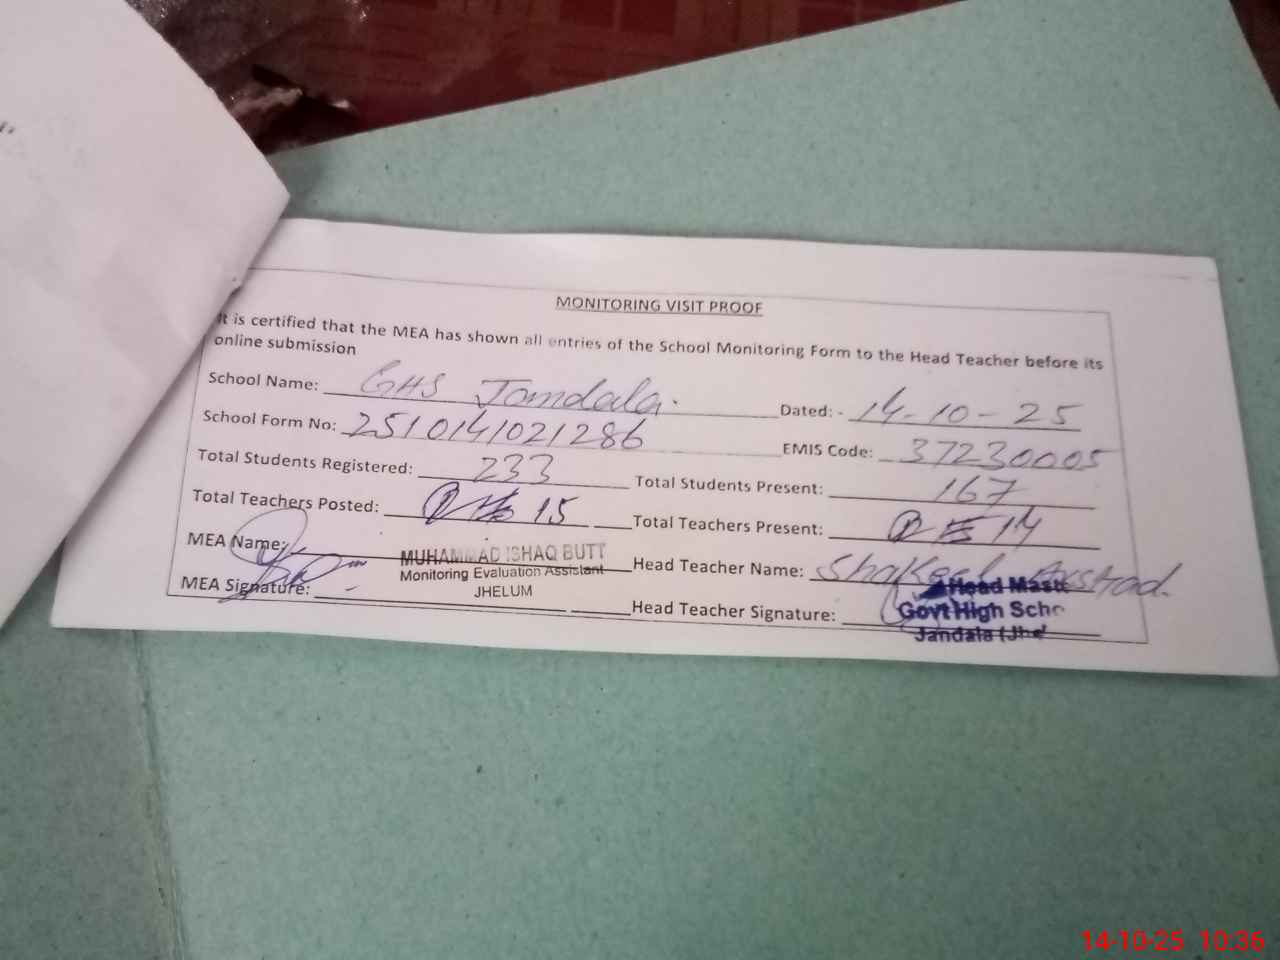 MONITORING VISIT PROOF
It is certified that the MEA has shown all entries of the School Monitoring Form to the Head Teacher before its
online submission
School Name: GHS Jandala. Dated: - 14-10-25
School Form No: 2510141021286 EMIS Code: 37230005
Total Students Registered: 233 Total Students Present: 167
Total Teachers Posted: 15 Total Teachers Present: 14
MEA Name: MUHAMMAD ISHAQ BUTT Head Teacher Name: Shakeel Arshad.
Monitoring Evaluation Assistant
JHELUM
MEA Signature: Head Teacher Signature:
Head Maste
Govt High Scho
Jandala (Jhe
14-10-25 10:36